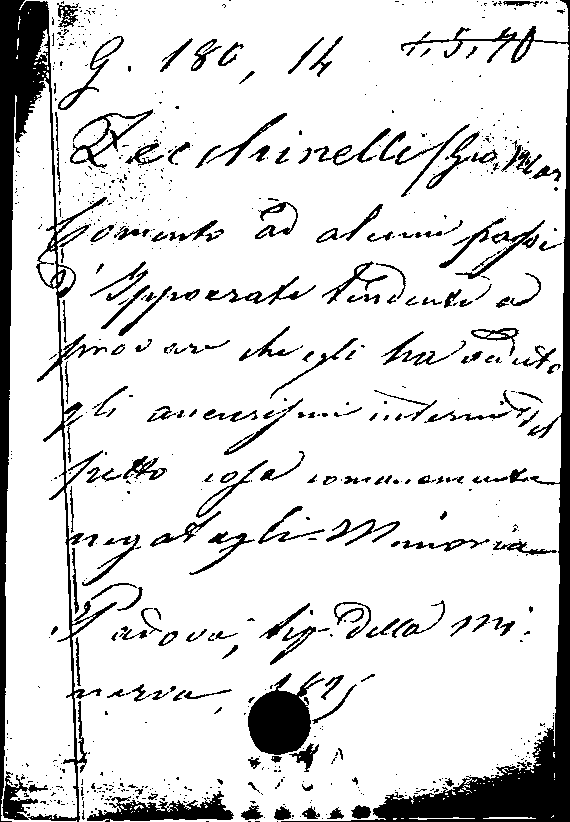 G. 180, 14 4,5,70
Zecchinelli (Gio. Mar.
Comento ad alcuni passi
d'Ippocrate tendente a
provare che egli ha veduto
gli aneurismi interni del
petto cosa comunemente
negatagli - Memoria
Padova, tip. della Mi-
nerva, 1825